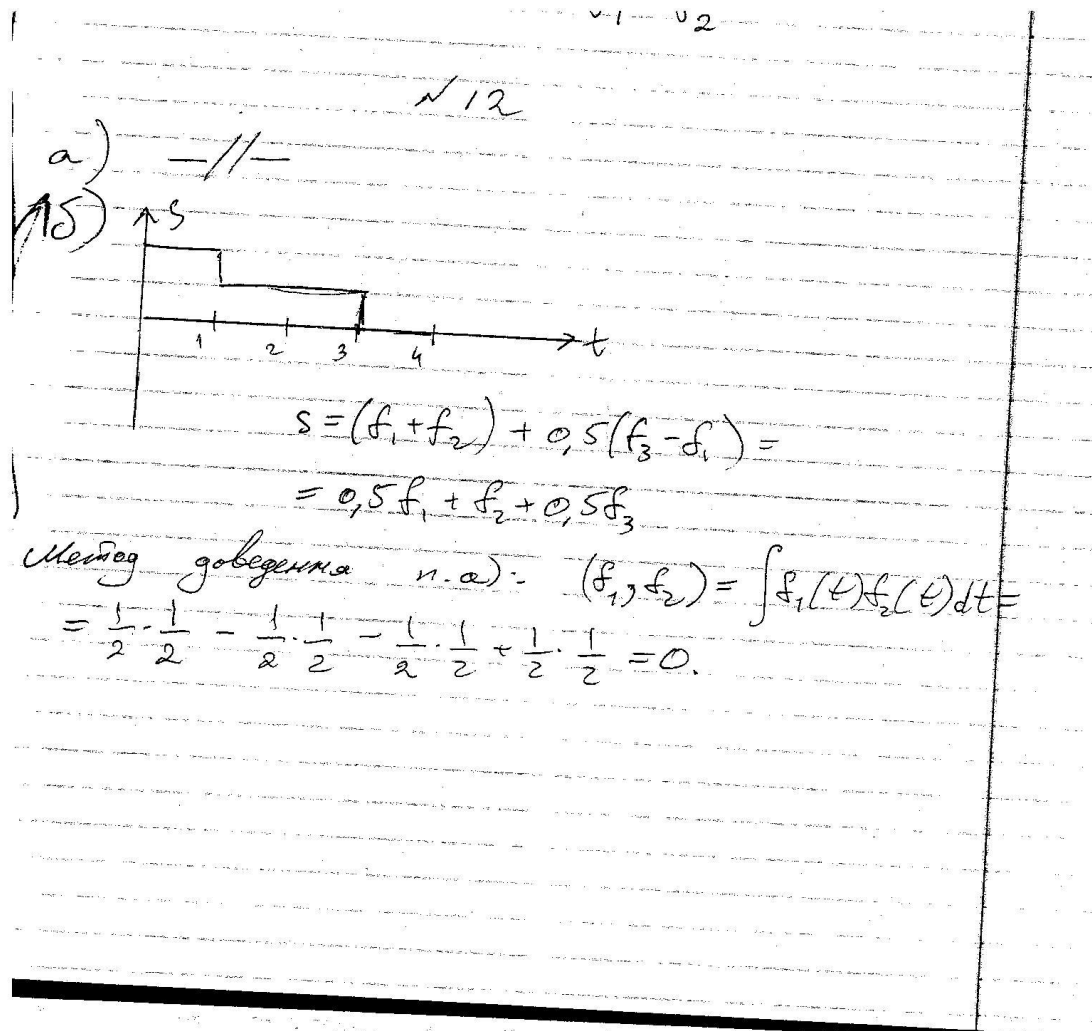 №12
а) —//—
б) S
1 2 3 4 t
s = (f₁ + f₂) + 0,5(f₃ - f₁) =
= 0,5f₁ + f₂ + 0,5f₃
Метод доведення п.а): (f₁, f₂) = ∫f₁(t)f₂(t)dt =
= 1/2 · 1/2 - 1/2 · 1/2 - 1/2 · 1/2 + 1/2 · 1/2 = 0.